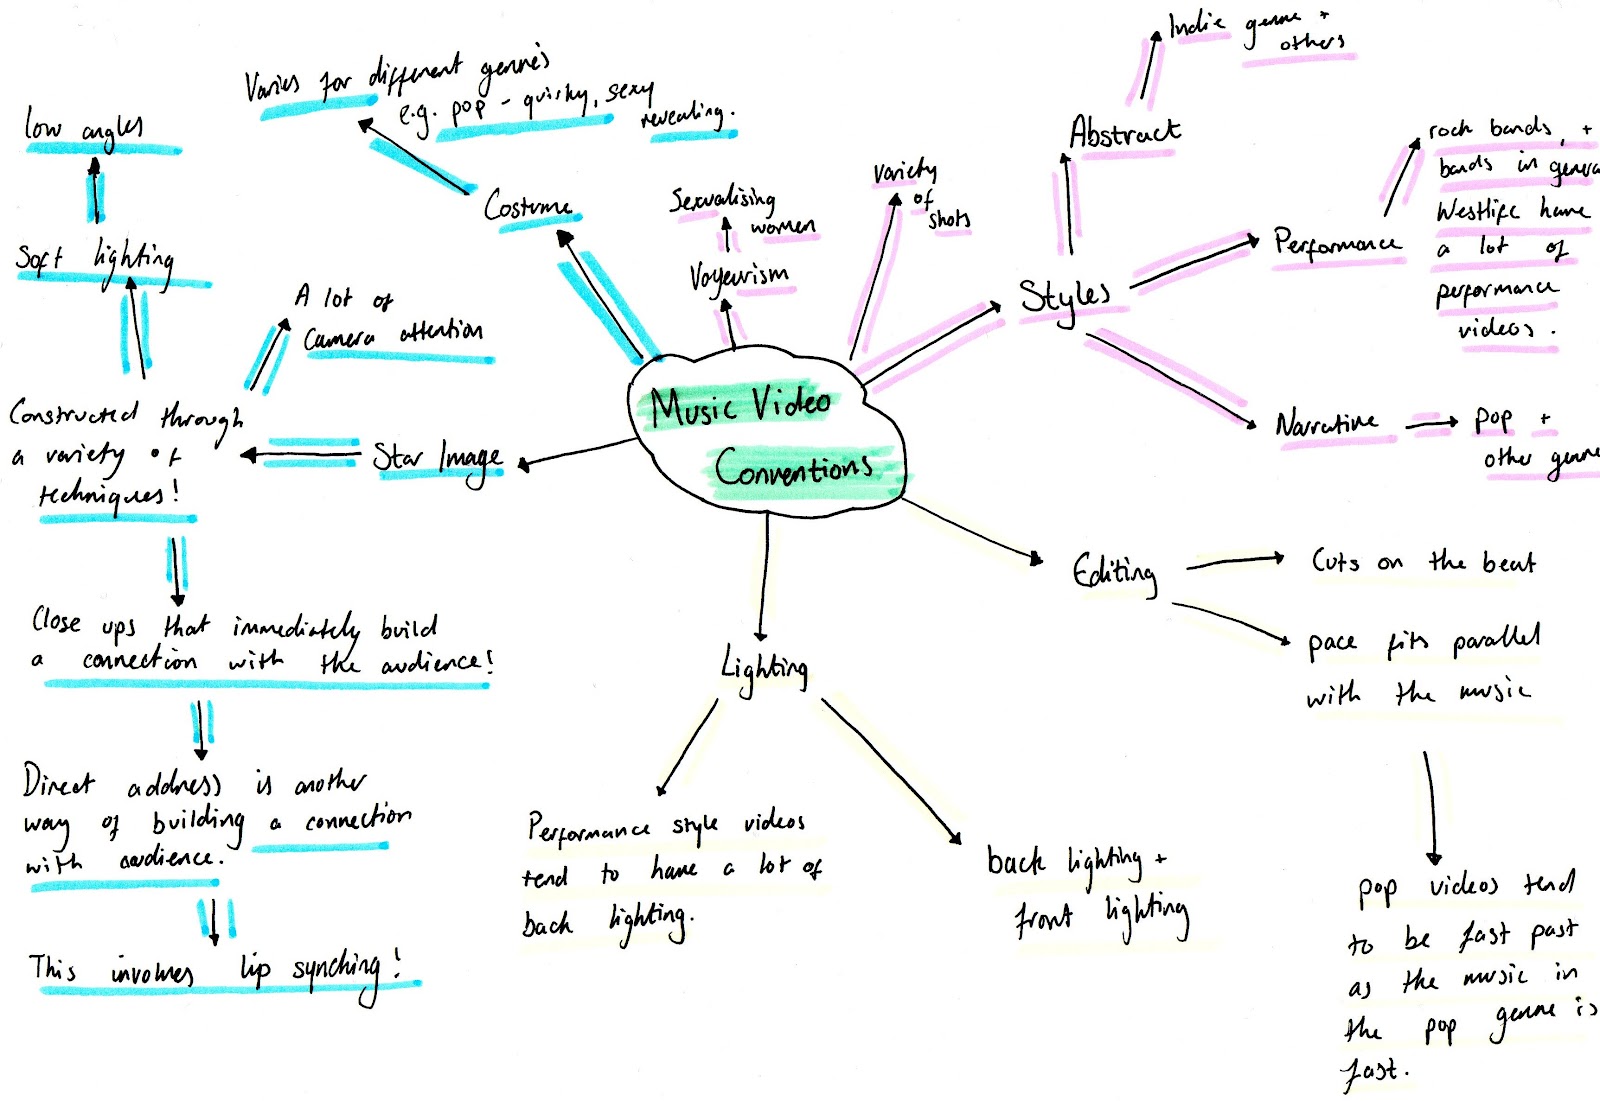 Music Video
Conventions
Costume
Varies for different genre's
e.g. pop - quirky, sexy
revealing.
Voyeurism
Sexualising
women
variety
of
shots
Styles
Abstract
Indie genre +
others
Performance
rock bands, +
bands in genera
Westlife have
a lot of
performance
videos.
Narrative
pop +
other genre
Editing
Cuts on the beat
pace fits parallel
with the music
pop videos tend
to be fast past
as the music in
the pop genre is
fast.
Lighting
Performance style videos
tend to have a lot of
back lighting.
back lighting +
front lighting
Star Image
Constructed through
a variety of
techniques!
A lot of
Camera attention
Soft lighting
low angles
Close ups that immediately build
a connection with the audience!
Direct address is another
way of building a connection
with audience.
This involves lip synching!